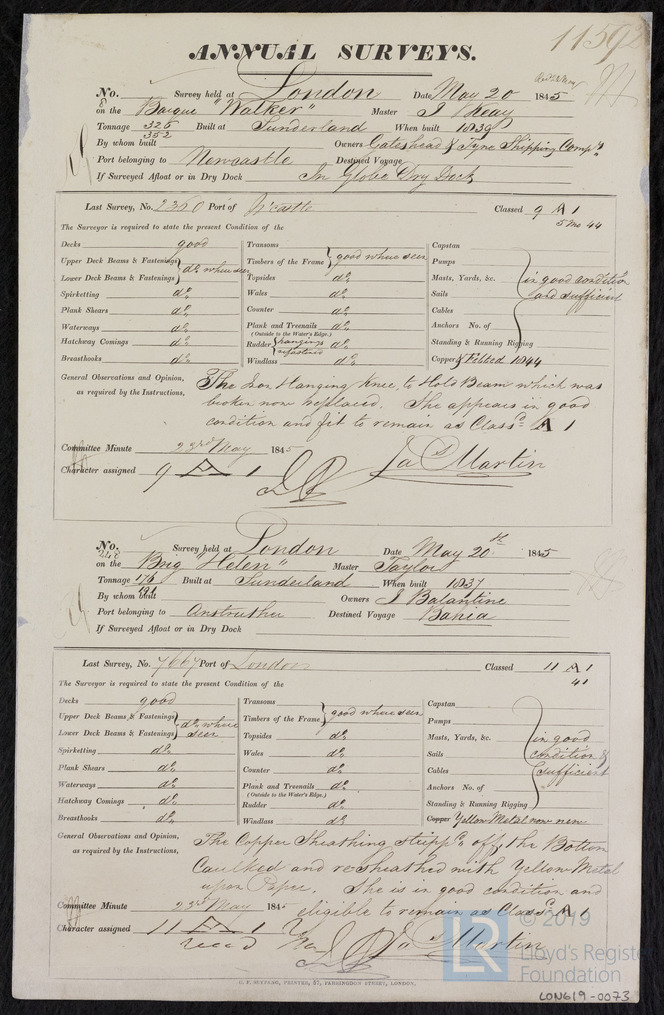 11592
ANNUAL SURVEYS.
No. Survey held at London Date May 20 1845
on the Barque "Walker" Master J Keay
Tonnage 326 Built at Sunderland When built 1839
352
By whom built Owners Gateshead & Tyne Shipping Compy
Port belonging to Newcastle Destined Voyage
If Surveyed Afloat or in Dry Dock In Globe Dry Dock
Last Survey, No. 2360 Port of N'castle Classed 9 A 1
5 Mo 44
The Surveyor is required to state the present Condition of the
Decks good
Upper Deck Beams & Fastenings } do where seen
Lower Deck Beams & Fastenings
Spirketting do
Plank Shears do
Waterways do
Hatchway Comings do
Breasthooks do
Transoms } good where seen
Timbers of the Frame
Topsides do
Wales do
Counter do
Plank and Treenails do
(Outside to the Water's Edge.)
Rudder { hangings refastened do
Windlass do
Capstan
Pumps
Masts, Yards, &c. } in good condition
Sails and sufficient
Cables
Anchors No. of
Standing & Running Rigging
Copper Felted 1844
General Observations and Opinion, The Iron Hanging Knee, to Hold Beam which was
as required by the Instructions, broken now replaced. She appears in good
condition and fit to remain as Classd A 1
Committee Minute 23rd May 1845
Character assigned 9 A 1 Jas Martin
No. Survey held at London Date May 20th 1845
on the Brig "Helen" Master Taylor
Tonnage 176 Built at Sunderland When built 1837
By whom built Owners J Balantine
Port belonging to Anstruther Destined Voyage Bahia
If Surveyed Afloat or in Dry Dock
Last Survey, No. 7667 Port of London Classed 11 A 1
41
The Surveyor is required to state the present Condition of the
Decks good
Upper Deck Beams & Fastenings } do where
Lower Deck Beams & Fastenings seen
Spirketting do
Plank Shears do
Waterways do
Hatchway Comings do
Breasthooks do
Transoms } good where seen
Timbers of the Frame
Topsides do
Wales do
Counter do
Plank and Treenails do
(Outside to the Water's Edge.)
Rudder do
Windlass do
Capstan
Pumps
Masts, Yards, &c. } in good
Sails condition &
Cables sufficient
Anchors No. of
Standing & Running Rigging
Copper Yellow Metal now new
General Observations and Opinion, The Copper Sheathing strippd off, the Bottom
as required by the Instructions, Caulked and resheathed with Yellow Metal
upon Paper. She is in good condition and
Committee Minute 23rd May 1845 eligible to remain as Classd A 1
Character assigned 11 A 1 Jas Martin
© 2019
LR
Lloyd's Register
Foundation
LON619-0073